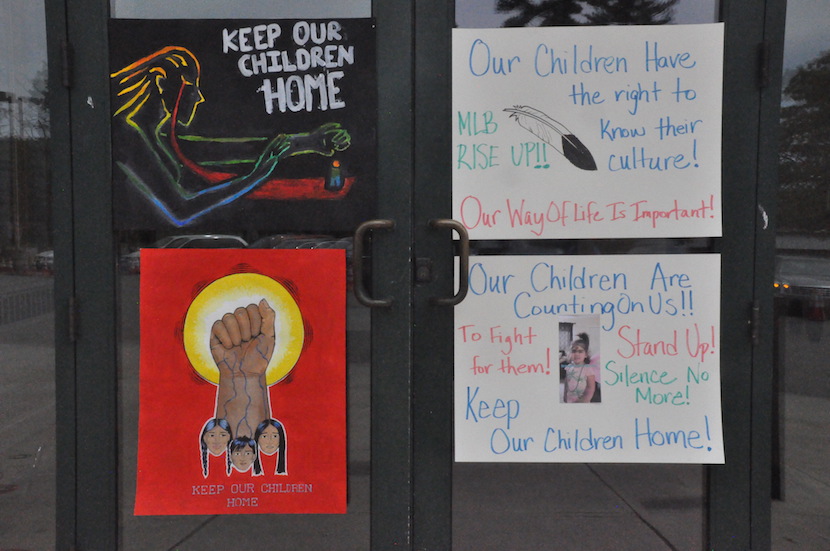 KEEP OUR
CHILDREN
HOME
KEEP OUR CHILDREN
HOME
Our Children Have
the right to
Know their
culture!
MLB
RISE UP!!
Our Way Of Life Is Important!
Our Children Are
Counting On Us!!
To Fight
for them!
Stand Up!
Silence No
More!
Keep
Our Children Home!